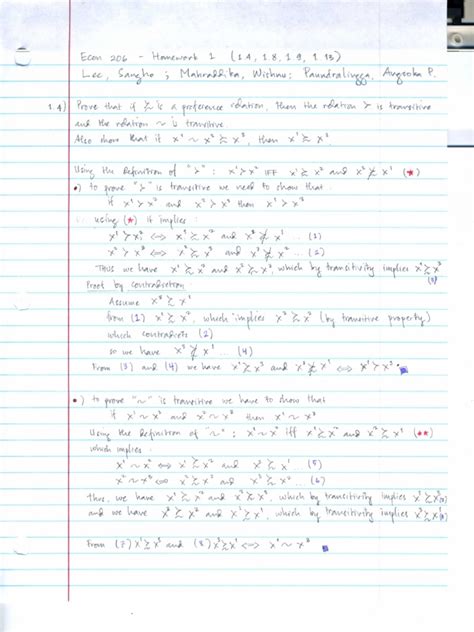 Econ 206 - Homework 1 (1.4, 1.8, 1.9, 1.13)
Lee, Sangho ; Mahraddika, Wishnu; Paundralingga, Anggoska P.
1.4) Prove that if ≿ is a preference relation, then the relation ≻ is transitive
and the relation ~ is transitive.
Also show that if x¹ ~ x² ≿ x³, then x¹ ≿ x³.
Using the definition of "≻" : x¹ ≻ x² IFF x¹ ≿ x² and x² ⋡ x¹ (*)
•) to prove "≻" is transitive we need to show that
if x¹ ≻ x² and x² ≻ x³ then x¹ ≻ x³
using (*) it implies :
x¹ ≻ x² ⟺ x¹ ≿ x² and x² ⋡ x¹ ... (1)
x² ≻ x³ ⟺ x² ≿ x³ and x³ ⋡ x² ... (2)
Thus we have x¹ ≿ x² and x² ≿ x³, which by transitivity implies x¹ ≿ x³
(3)
Proof by contradiction
Assume x³ ≿ x¹
from (1) x¹ ≿ x², which implies x³ ≿ x² (by transitive property)
which contradicts (2)
so we have x³ ⋡ x¹ ... (4)
From (3) and (4) we have x¹ ≿ x³ and x³ ⋡ x¹ ⟺ x¹ ≻ x³
•) to prove "~" is transitive we have to show that
if x¹ ~ x² and x² ~ x³ then x¹ ~ x³
Using the definition of "~" : x¹ ~ x² iff x¹ ≿ x² and x² ≿ x¹ (**)
which implies :
x¹ ~ x² ⟺ x¹ ≿ x² and x² ≿ x¹ ... (5)
x² ~ x³ ⟺ x² ≿ x³ and x³ ≿ x² ... (6)
Thus, we have x¹ ≿ x² and x² ≿ x³, which by transitivity implies x¹ ≿ x³ (7)
and we have x³ ≿ x² and x² ≿ x¹, which by transitivity implies x³ ≿ x¹ (8)
From (7) x¹ ≿ x³ and (8) x³ ≿ x¹ ⟺ x¹ ~ x³